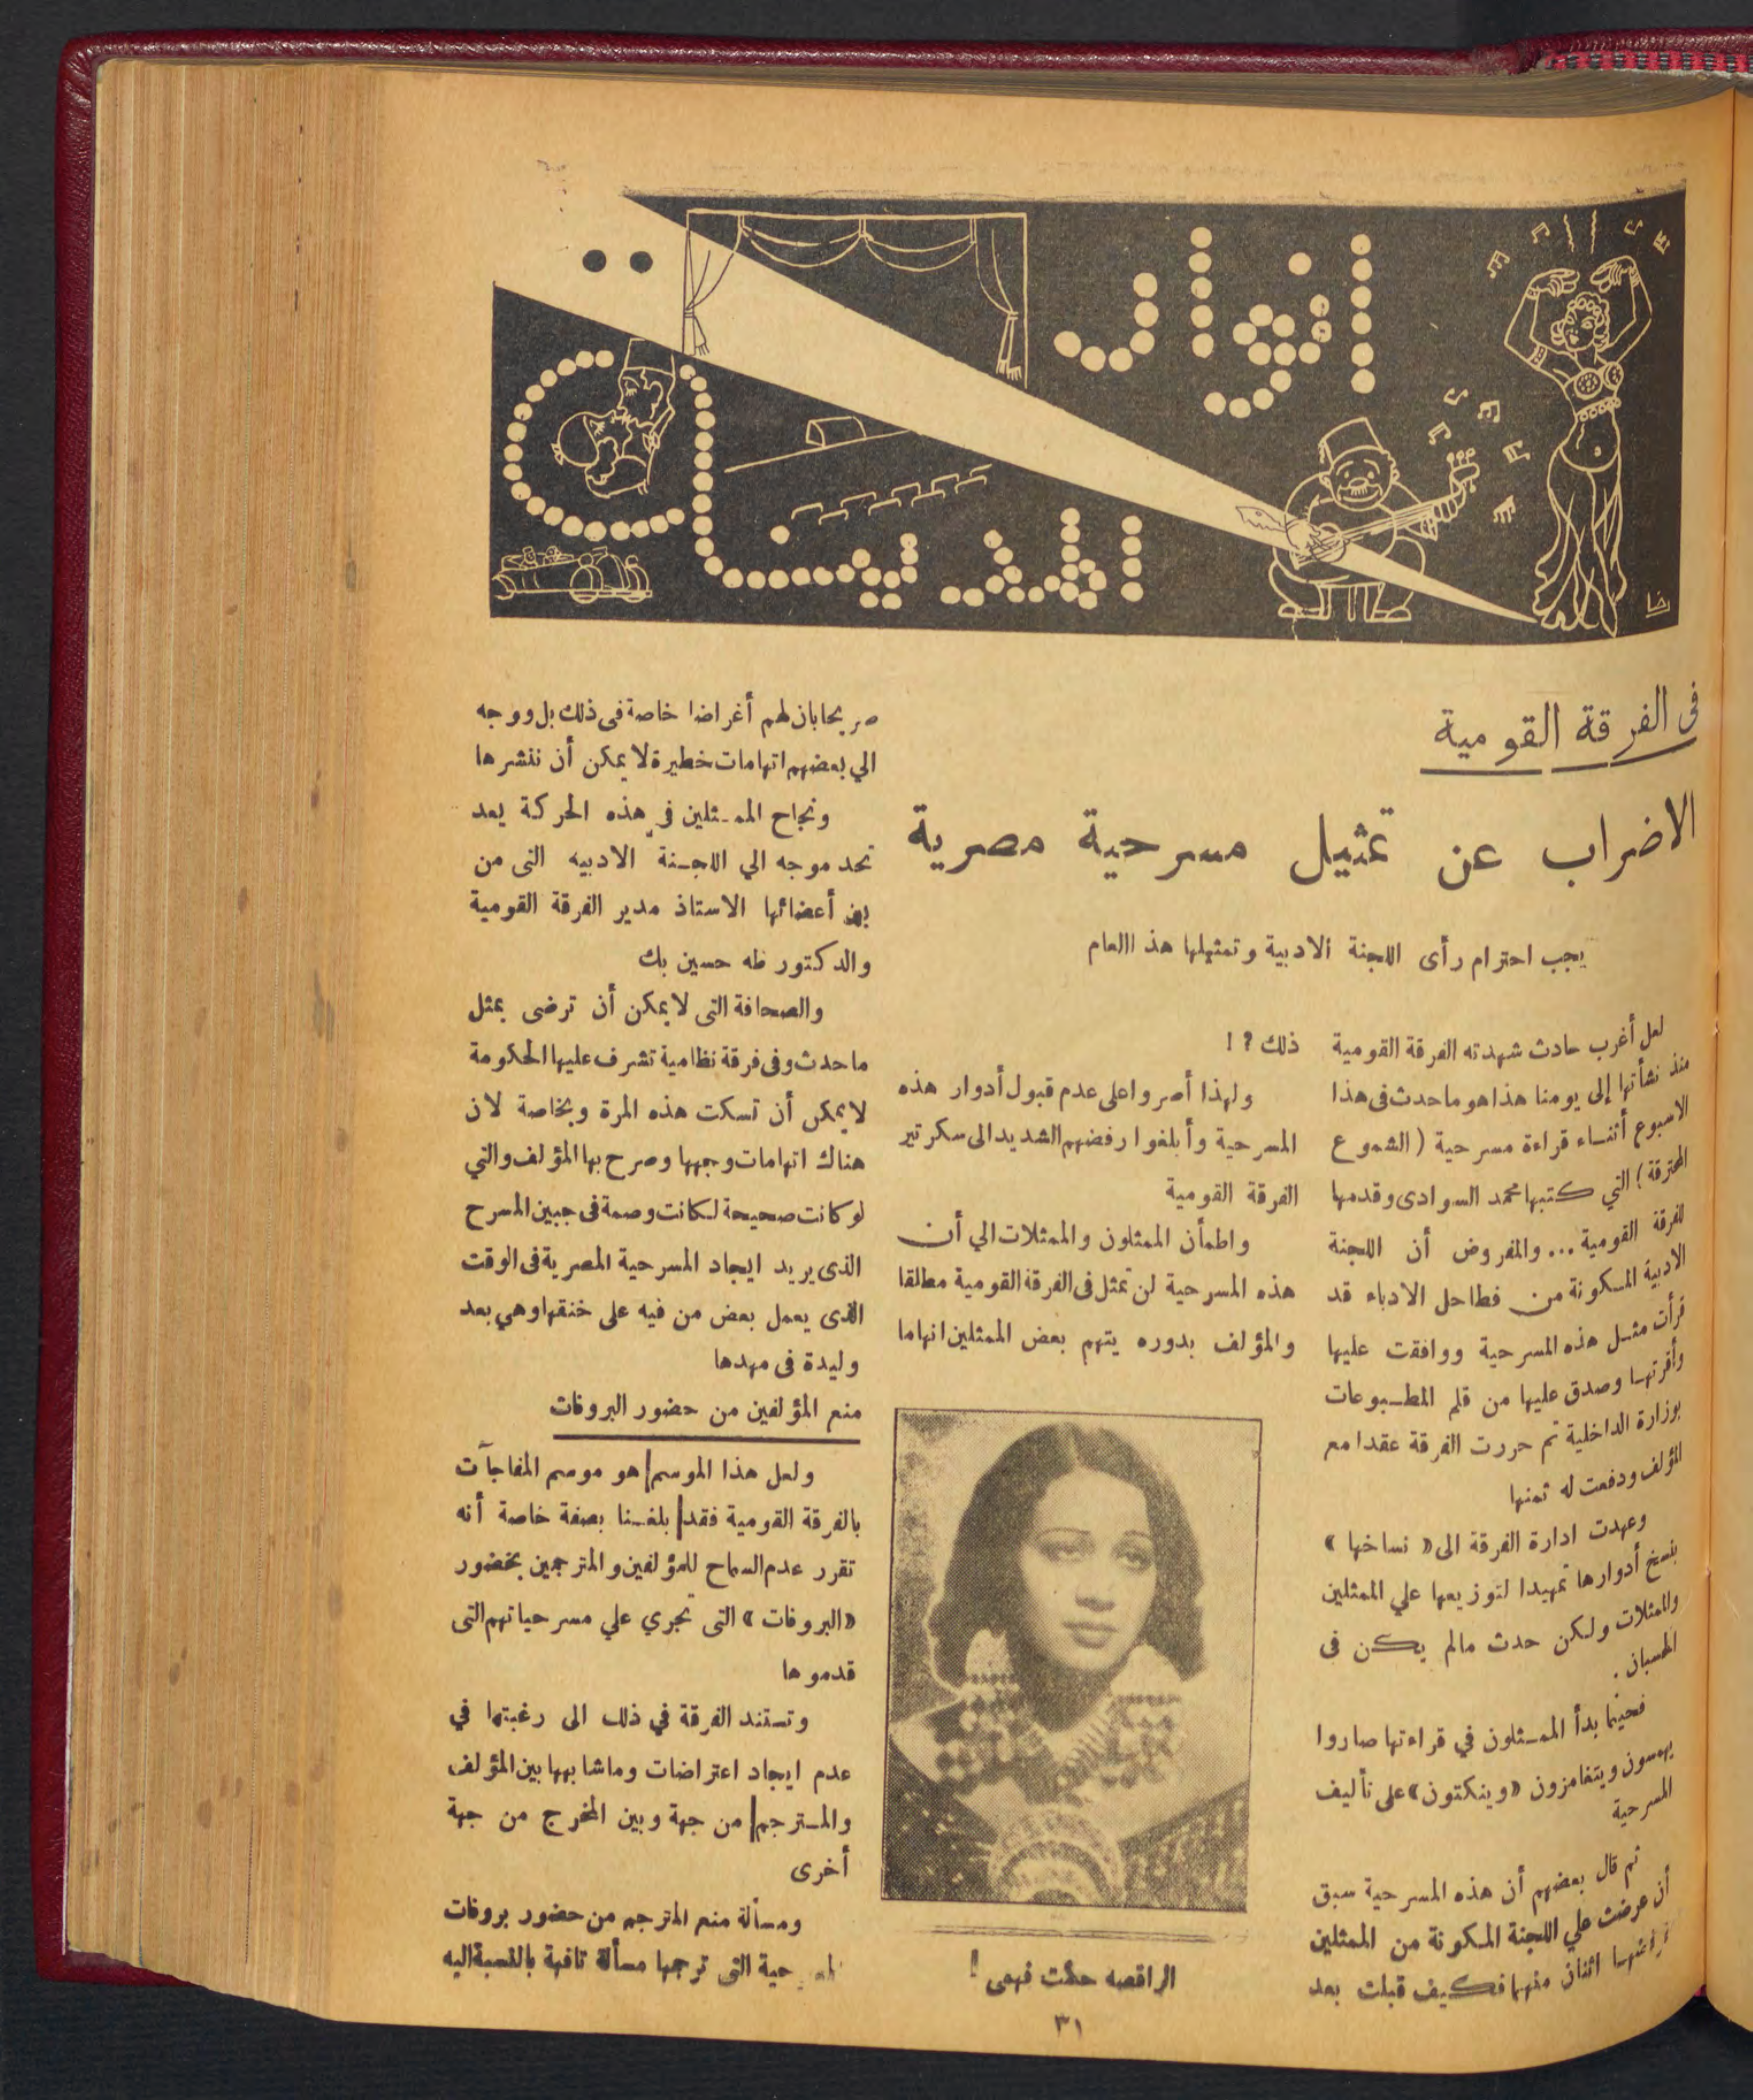 انوار
المدينة
رضا
في الفرقة القومية
الاضراب عن تمثيل مسرحية مصرية
يجب احترام رأى اللجنة الادبية وتمثيلها هذ االعام
لعل أغرب حادث شهدته الفرقة القومية
منذ نشأتها إلى يومنا هذا هو ماحدث فى هذا
الاسبوع أثنـاء قراءة مسرحية ( الشموع
المحترقة ) التي كتبها محمد السوادى وقدمها
للفرقة القومية ... والمفروض أن اللجنة
الادبية المـكونة من فطاحل الادباء قد
قرأت مثـل هذه المسرحية ووافقت عليها
وأقرتهـا وصدق عليها من قلم المطـبوعات
بوزارة الداخلية ثم حررت الفرقة عقدا مع
المؤلف ودفعت له ثمنها
وعهدت ادارة الفرقة الى « نساخها »
بنسخ أدوارها تمهيدا لتوزيعها علي الممثلين
والممثلات ولكن حدث مالم يكن فى
الحسبان .
فحينما بدأ الممـثلون في قراءتها صاروا
يهمسون ويتغامزون «وينكتون» على تأليف
المسرحية
ثم قال بعضهم أن هذه المسرحية سبق
أن عرضت علي اللجنة المـكونة من الممثلين
قرأتهـا اثنان منهما فكيف قبلت بعد
ذلك ? !
ولهذا أصروا على عدم قبول أدوار هذه
المسرحية وأبلغوا رفضهم الشديد الى سكرتير
الفرقة القومية
واطمأن الممثلون والممثلات الي أن
هذه المسرحية لن تمثل فى الفرقة القومية مطلقا
والمؤلف بدوره يتهم بعض الممثلين اتهاما
الراقصه حكمت فهمى !
صريحا بان لهم أغراضا خاصة فى ذلك بل ووجه
الي بعضهم اتهامات خطيرة لا يمكن أن ننشرها
ونجاح الممـثلين في هذه الحركة يعد
تحد موجه الي اللجـنة الادبيه التى من
بين أعضائها الاستاذ مدير الفرقة القومية
والدكتور طه حسين بك
والصحافة التى لا يمكن أن ترضى بمثل
ماحدث وفى فرقة نظامية تشرف عليها الحكومة
لايمكن أن تسكت هذه المرة وبخاصة لان
هناك اتهامات وجهها وصرح بها المؤلف والتي
لو كانت صحيحة لـكانت وصمة فى جبين المسرح
الذى يريد ايجاد المسرحية المصرية فى الوقت
الذى يعمل بعض من فيه على خنقها وهي بعد
وليدة فى مهدها
منع المؤلفين من حضور البروفات
ولعل هذا الموسم هو موسم المفاجآت
بالفرقة القومية فقد بلغـنا بصفة خاصة أنه
تقرر عدم السماح للمؤلفين والمترجمين بحضور
«البروفات» التى تجري علي مسرحياتهم التى
قدموها
وتستند الفرقة في ذلك الى رغبتها في
عدم ايجاد اعتراضات وماشابهها بين المؤلف
والمـترجم من جهة وبين المخرج من جهة
أخرى
ومسألة منع المترجم من حضور بروفات
حية التى ترجمها مسألة تافهة بالنسبة اليه
٣١